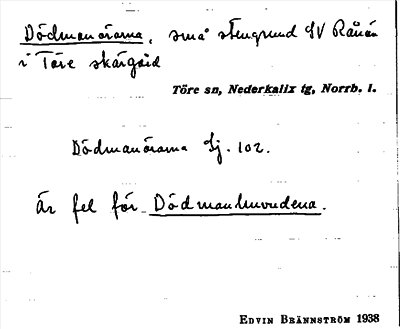 Dödmanörarna, små stengrund SV Rånön
i Töre skärgård
Töre sn, Nederkalix tg, Norrb. l.
Dödmanörarna Sj. 102.
Är fel för Dödmanhuvudena.
EDVIN BRÄNNSTRÖM 1938